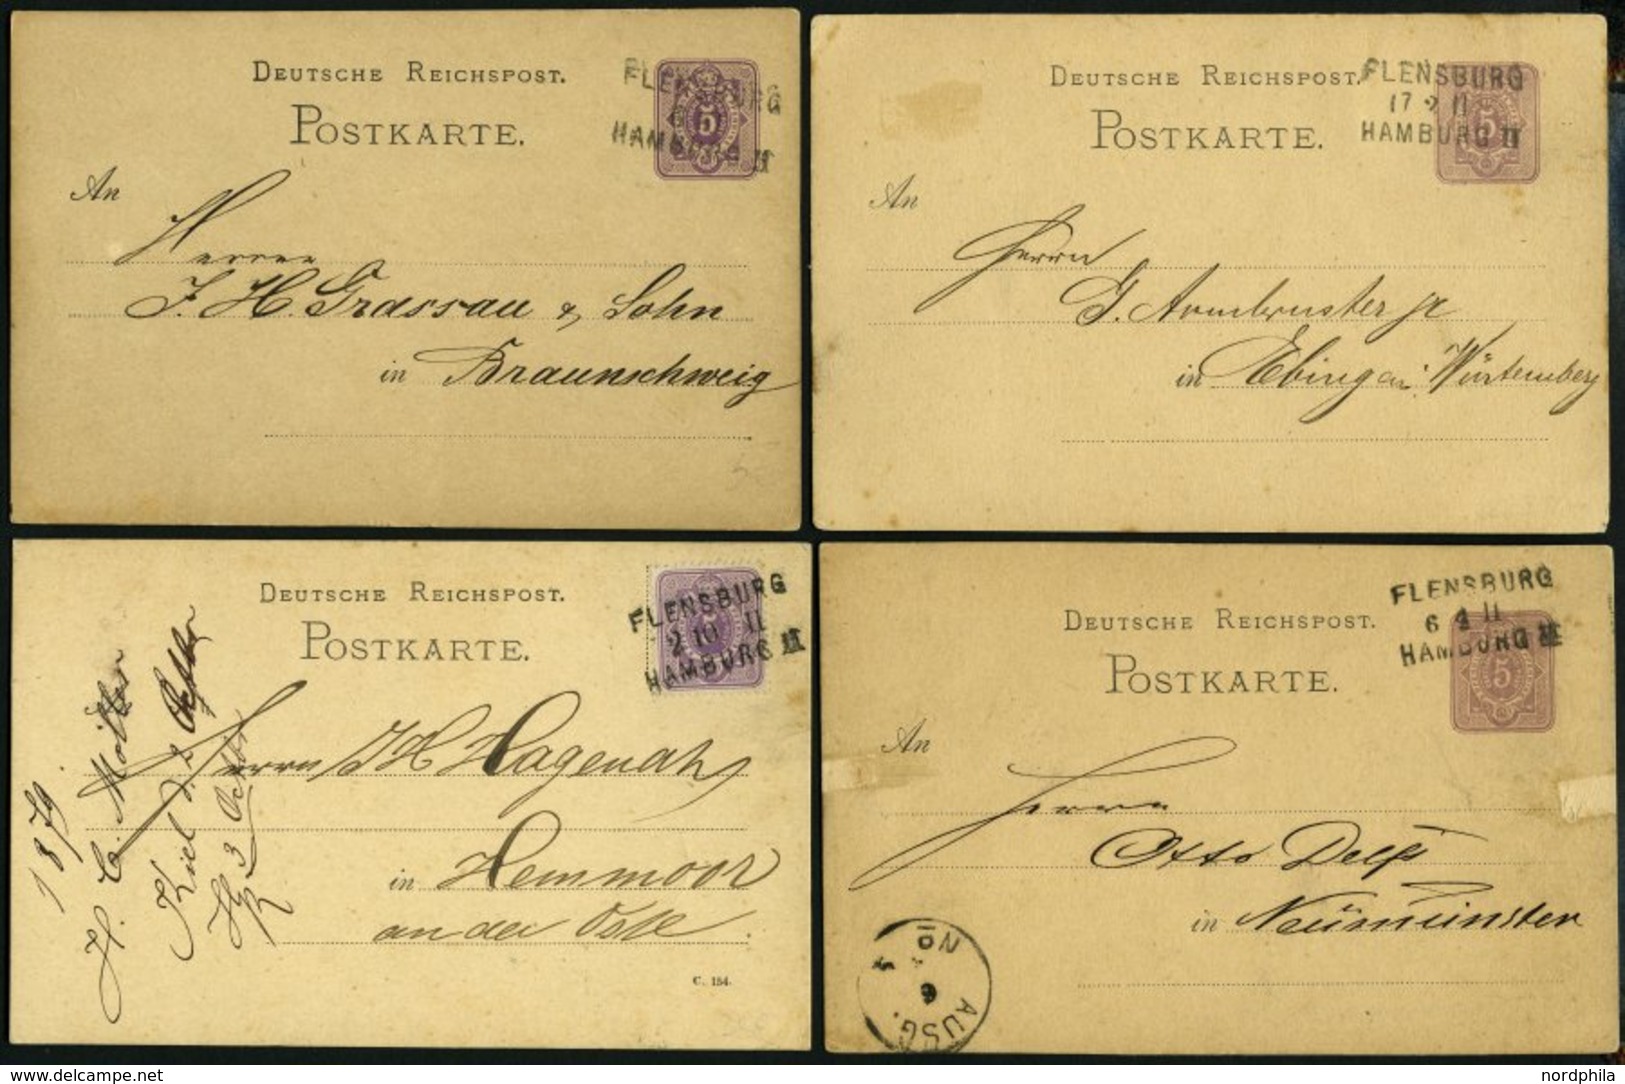 DEUTSCHE REICHSPOST.
POSTKARTE.
FLENSBURG
HAMBURG II
5
An
Herren
J. H. Grassau & Sohn
in Braunschweig
DEUTSCHE REICHSPOST.
POSTKARTE.
FLENSBURG
17 2 II
HAMBURG II
5
An
Herrn
G. Armbruster jr
in Ebingen Würtemberg
DEUTSCHE REICHSPOST.
POSTKARTE.
FLENSBURG
2 10 II
HAMBURG III
5
Herrn J H Hagenah
in Hemmoor
an der Oste.
C. 154.
1879.
H. C. Möller
Kiel d. 2 Octbr
3 Octbr
DEUTSCHE REICHSPOST.
POSTKARTE.
FLENSBURG
6 4 II
HAMBURG III
5
An
Herrn
Otto Delfs
in Neümünster
AUSG.
6
www.delcampe.net
nordphila